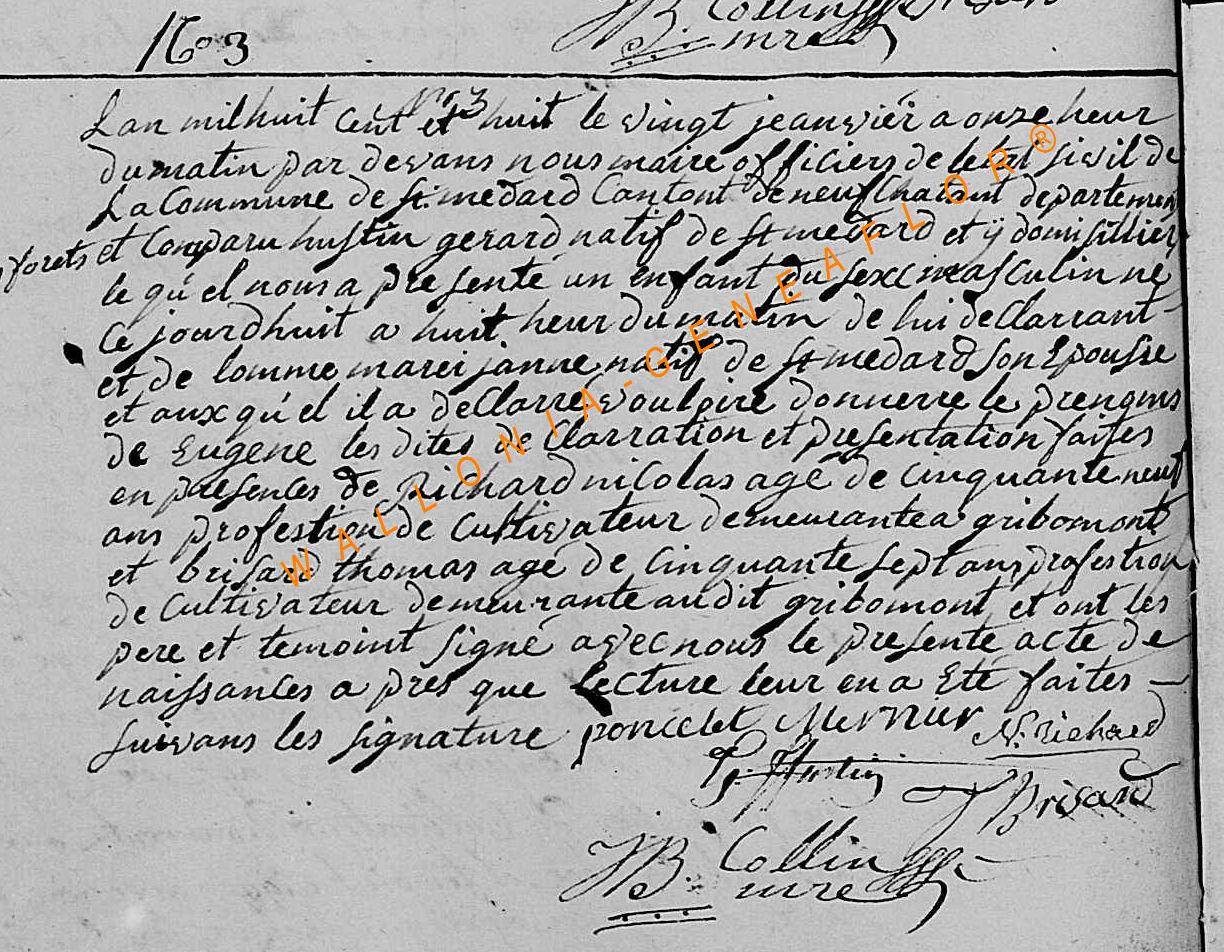 JB Collin
mre
No 3
No 3
Lan mil huit cent et huit le vingt jeanviér a onze heur
du matin par devans nous maire officiers de letat sivil de
La Commune de St. medard Cantont de neufchatant departement
forets et Comparu hustin gerard natif de St medard et ÿ domisillier
le qu'el nous a presenté un enfant du sexe masculin né
Ce jourdhuit a huit heur du matin de lui deClarrant
et de lomme marei janne natif de St medard son Epousse
et aux qu'el il a deClarré vouloire donnerre le prenoms
de Eugene les dites deClarration et presentation faites
en presences de Richard nicolas agé de cinquante neuf
ans profestion de Cultivateur demeurante a gribomont
et brisard thomas agé de Cinquante sept ans profestion
de Cultivateur demeurante audit gribomont et ont les
pere et temoint signé avec nous le presente acte de
naissances a pres que Lecture leur en a Eté faites
suivans les signature poncelet Mernier N. richard
G. Hustin
T Brisard
JB. Collin
mre
WALLONIA-GENEAFLOR®